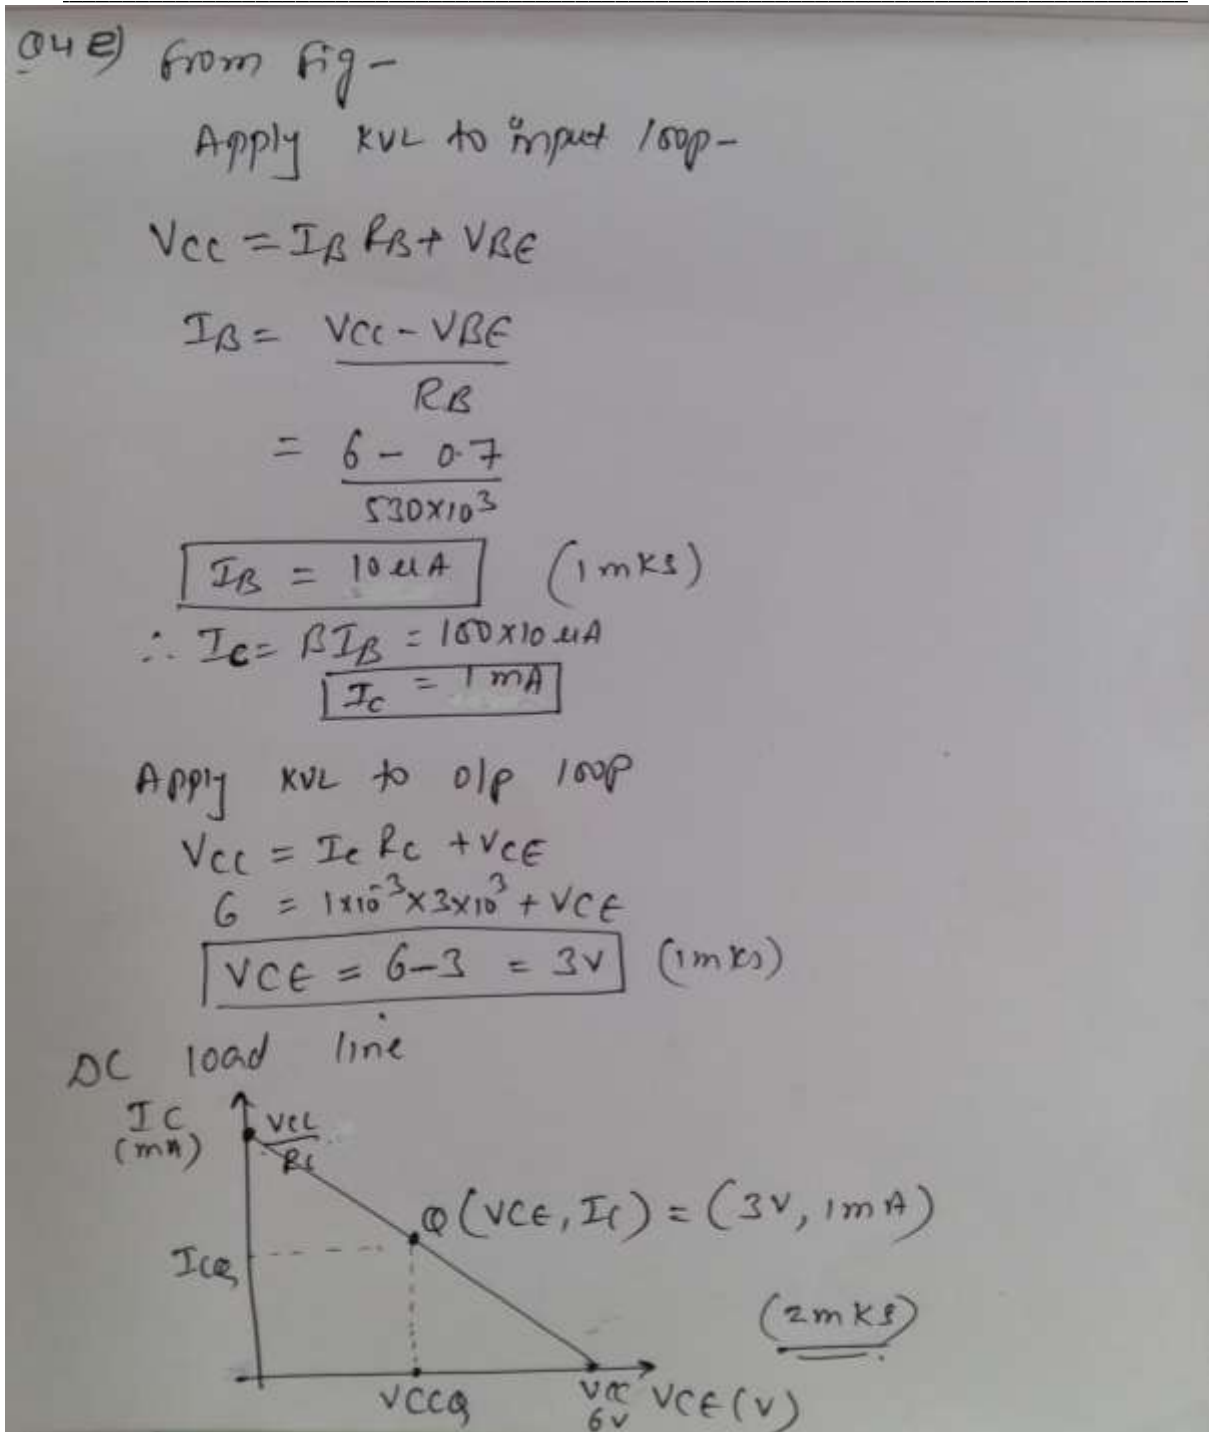 Q4 e) from fig -
Apply KVL to input loop -
VCC = IB RB + VBE
IB = VCC - VBE
RB
= 6 - 0.7
530×10³
IB = 10 uA (1 mks)
∴ IC = βIB = 100×10 uA
IC = 1 mA
Apply KVL to o/p loop
VCC = IC RC + VCE
6 = 1×10⁻³×3×10³ + VCE
VCE = 6-3 = 3V (1mks)
DC load line
IC
(mA)
VCC
RC
Q (VCE, IC) = (3V, 1mA)
ICQ
(2mks)
VCCQ VCC VCE (V)
6V